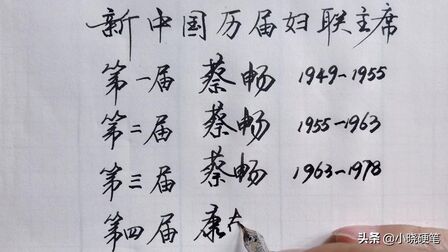 新中国历届妇联主席
第一届 蔡畅 1949-1955
第二届 蔡畅 1955-1963
第三届 蔡畅 1963-1978
第四届 康
头条 @小晓硬笔